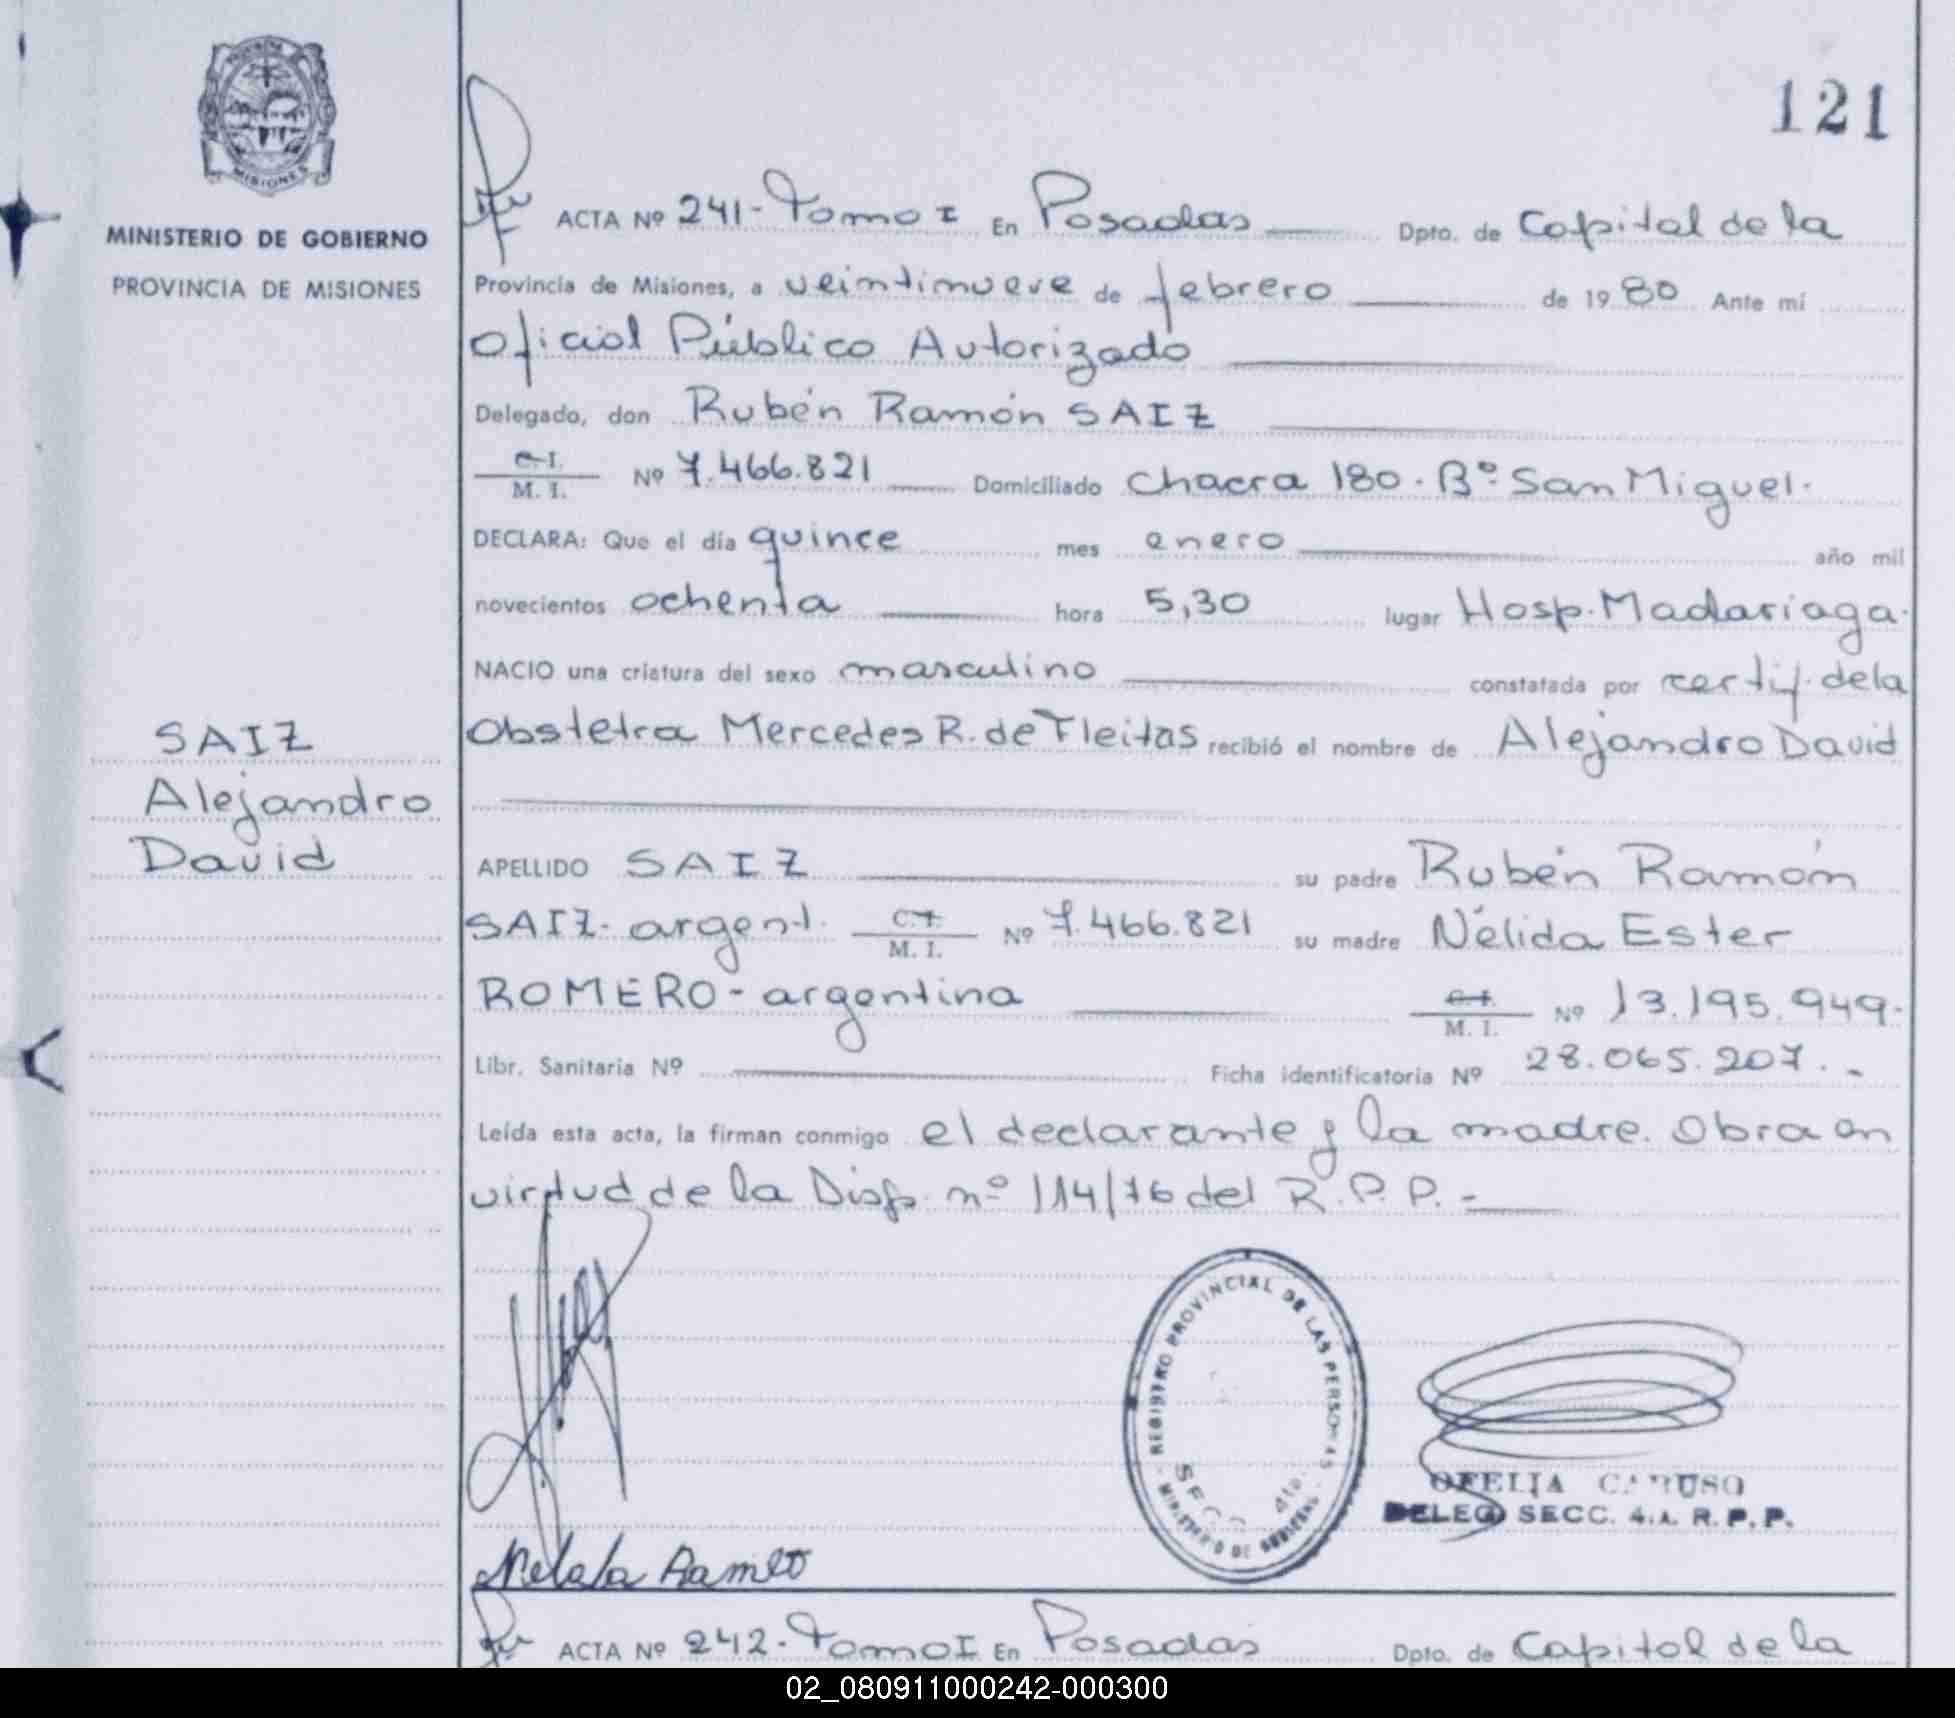 121
MISIONES
MINISTERIO DE GOBIERNO
PROVINCIA DE MISIONES
SAIZ
Alejandro
David
ACTA Nº 241- Tomo I En Posadas Dpto. de Capital de la
Provincia de Misiones, a veintinueve de febrero de 1980 Ante mí
Oficial Público Autorizado
Delegado, don Rubén Ramón SAIZ
C.I.
M. I. Nº 7.466.821 Domiciliado Chacra 180. Bº San Miguel.
DECLARA: Que el día quince mes enero año mil
novecientos ochenta hora 5,30 lugar Hosp. Madariaga.
NACIO una criatura del sexo masculino constatada por certif. de la
Obstetra Mercedes R. de Fleitas recibió el nombre de Alejandro David
APELLIDO SAIZ su padre Rubén Ramón
SAIZ- argent. C.I.
M. I. Nº 7.466.821 su madre Nélida Ester
ROMERO - argentina C.I.
M. I. Nº 13.195.949.
Libr. Sanitaria Nº Ficha identificatoria Nº 28.065.207. -
Leída esta acta, la firman conmigo el declarante y la madre. Obra en
virtud de la Disp. nº 114/76 del R.P.P. -
REGISTRO PROVINCIAL DE LAS PERSONAS
MINISTERIO DE GOBIERNO
SECC 4ta.
OFELIA CARUSO
DELEG SECC. 4.A. R. P. P.
ACTA Nº 242- Tomo I En Posadas Dpto. de Capital de la
02_080911000242-000300